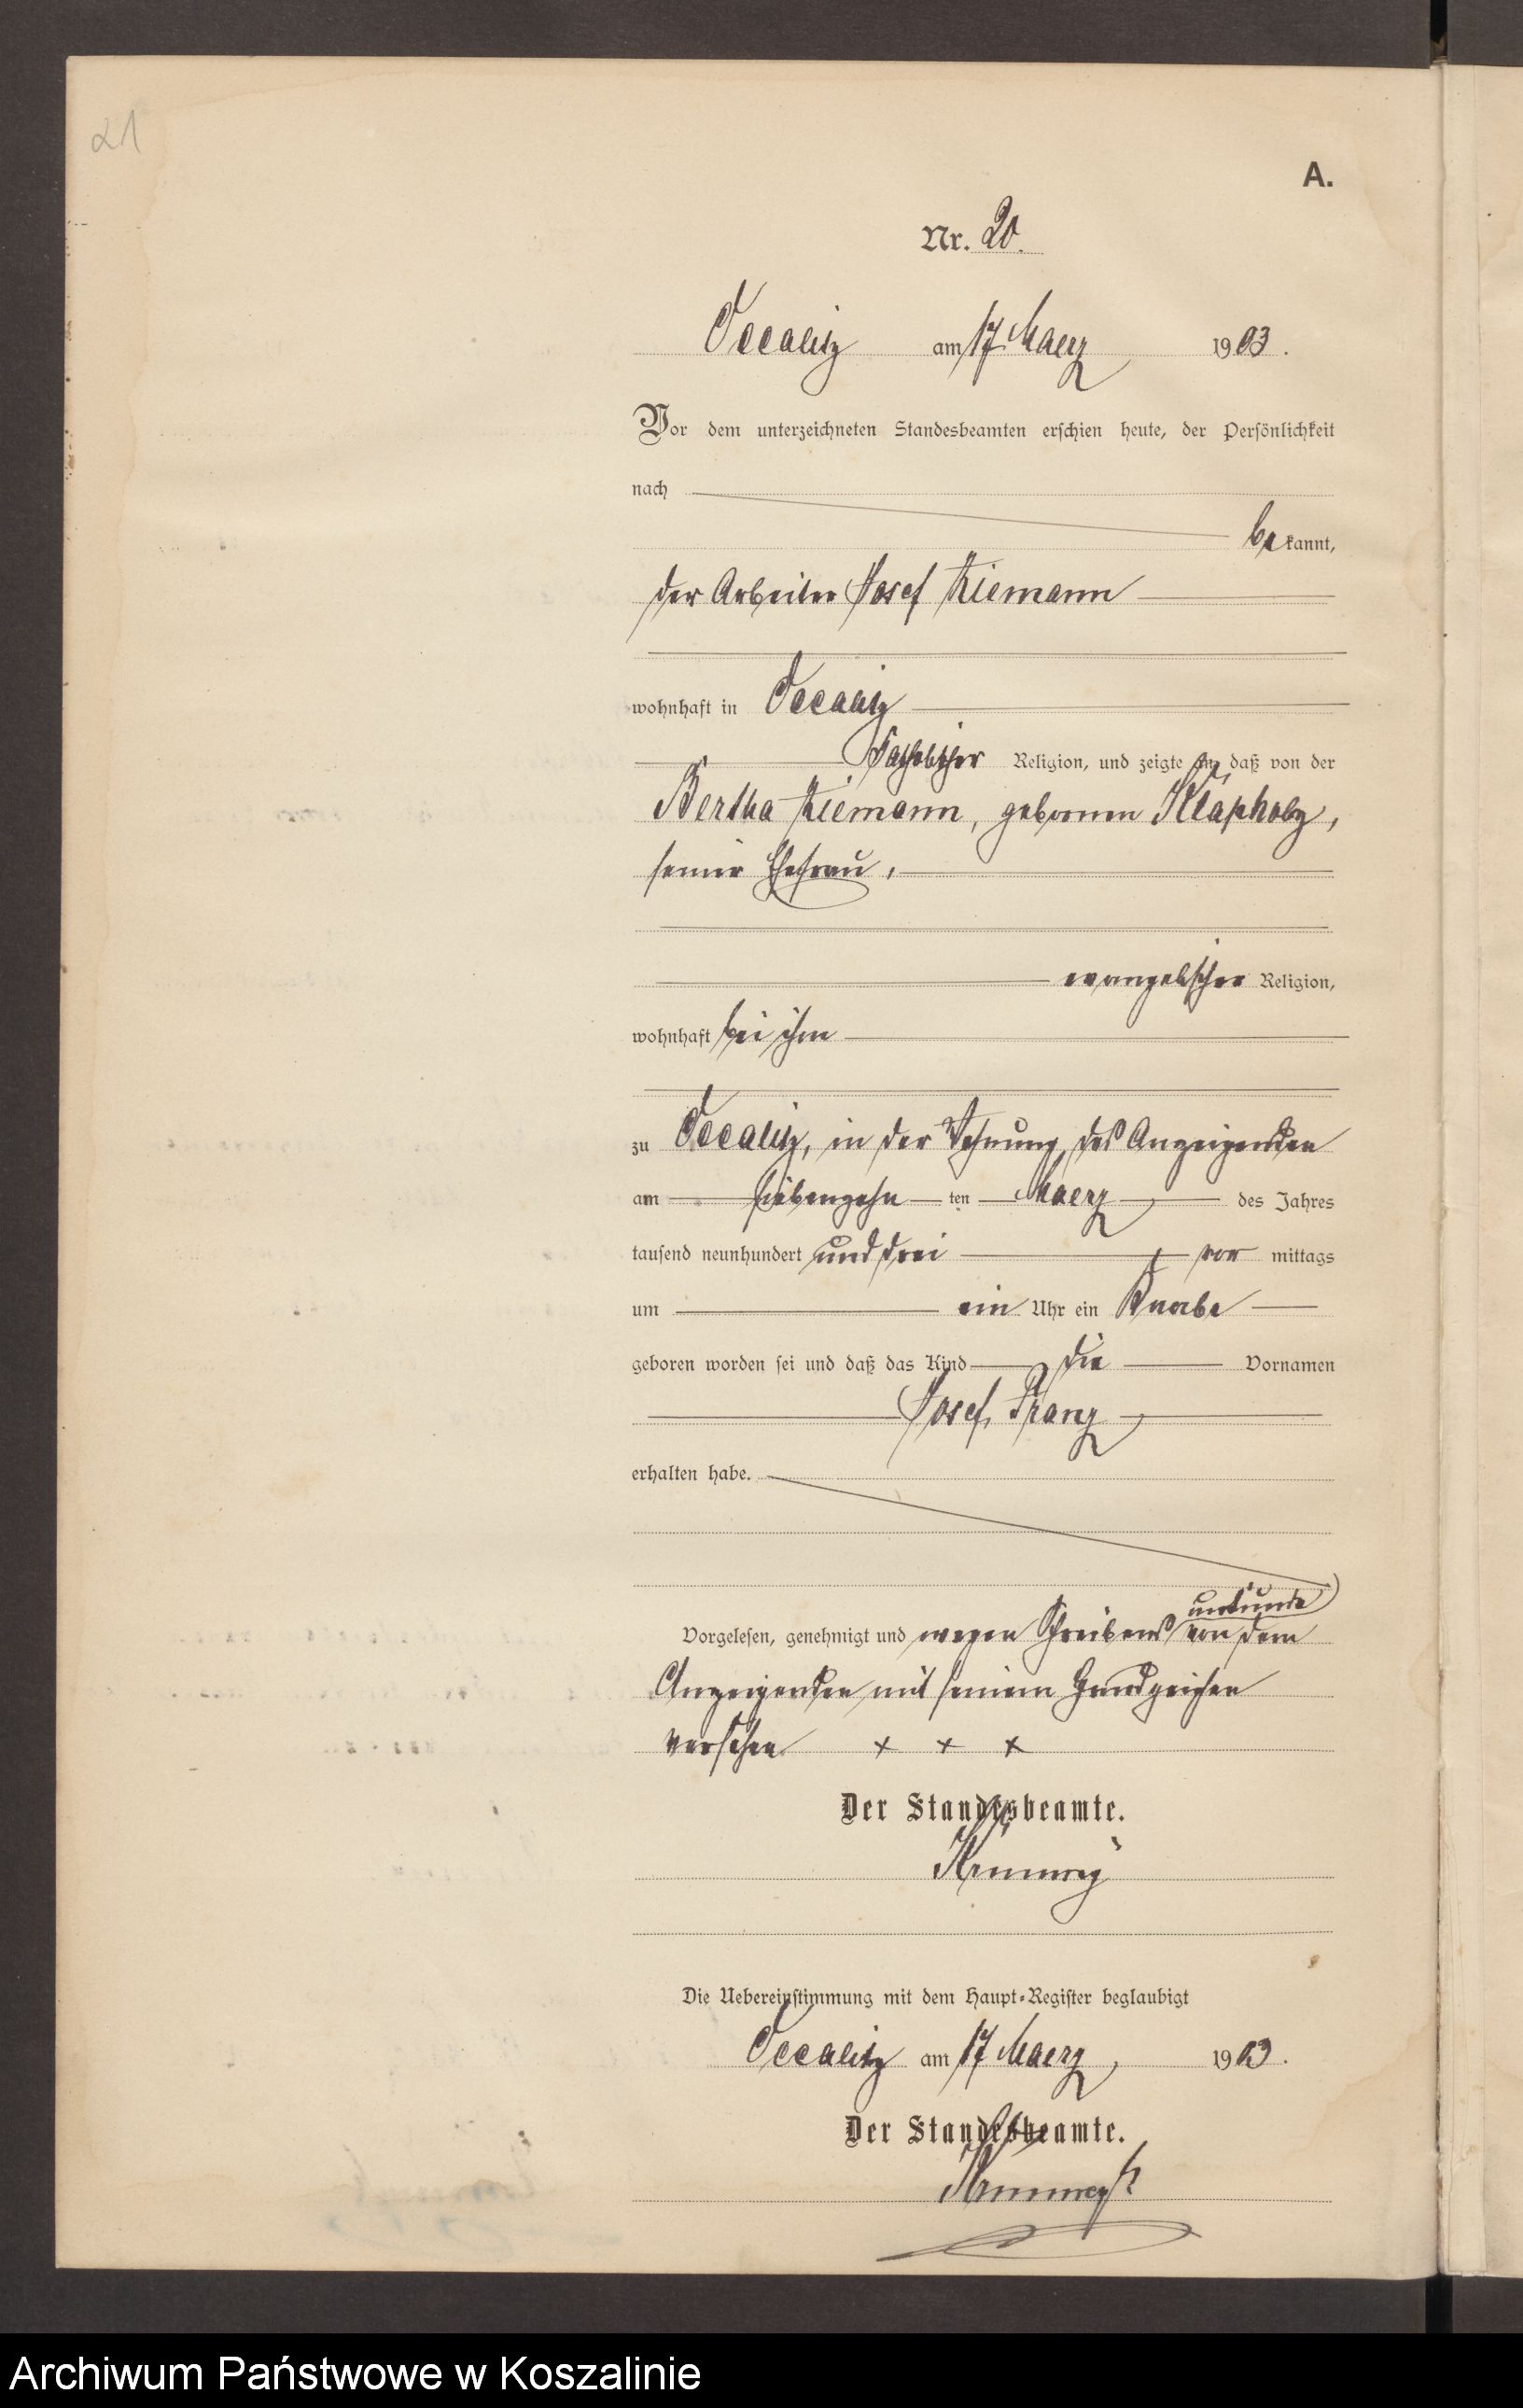 21
A.
Nr. 20.
Occalitz am 17 Maerz 1903.
Vor dem unterzeichneten Standesbeamten erschien heute, der Persönlichkeit
nach
bekannt,
der Arbeiter Josef Kiemann
wohnhaft in Occalitz
katholischer Religion, und zeigte an, daß von der
Bertha Kiemann, geborenen Klapholz,
seiner Ehefrau,
evangelischer Religion,
wohnhaft bei ihm
zu Occalitz, in der Wohnung des Anzeigenden
am siebenzehn ten Maerz des Jahres
tausend neunhundert und drei vor mittags
um ein Uhr ein Knabe
geboren worden sei und daß das Kind die Vornamen
Josef, Franz
erhalten habe.
unkunde
Vorgelesen, genehmigt und wegen Schreibens von dem
Anzeigenden mit seinem Handzeichen
versehen x x x
Der Standesbeamte.
Die Uebereinstimmung mit dem Haupt-Register beglaubigt
Occalitz am 17 Maerz 1903.
Der Standesbeamte.
Archiwum Państwowe w Koszalinie